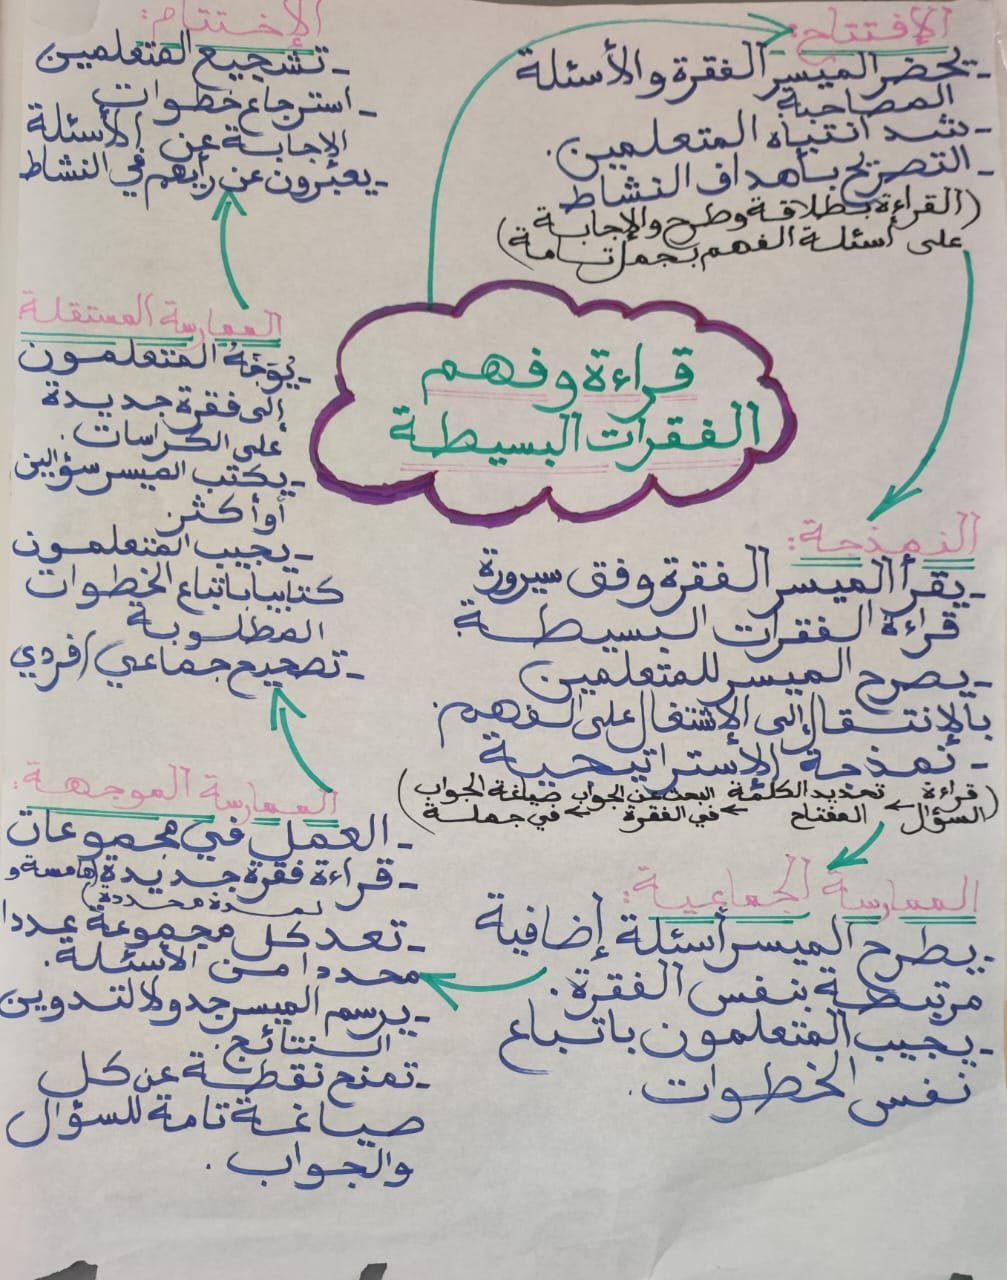 قراءة وفهم
الفقرات البسيطة
الإفتتاح:
- يحضر الميسر الفقرة والأسئلة
المصاحبة
- شد انتباه المتعلمين.
- التصريح بأهداف النشاط
(القراءة بطلاقة وطرح والإجابة
على أسئلة الفهم بجمل تامة)
النمذجة:
- يقرأ الميسر الفقرة وفق سيرورة
قراءة الفقرات البسيطة.
- يصرح الميسر للمتعلمين
بالانتقال إلى الإشتغال على الفهم.
- نمذجة الإستراتيجية
(قراءة السؤال ← تحديد الكلمة المفتاح ← البحث عن الجواب في الفقرة ← صياغة الجواب في جملة)
الممارسة الجماعية:
- يطرح الميسر أسئلة إضافية
مرتبطة بنفس الفقرة.
- يجيب المتعلمون باتباع
نفس الخطوات.
الممارسة الموجهة:
- العمل في مجموعات
- قراءة فقرة جديدة (هامسة و
لمدة محددة)
- تعد كل مجموعة عددا
محددا من الأسئلة.
- يرسم الميسر جدولا لتدوين
النتائج.
- تمنح نقطة عن كل
صياغة تامة للسؤال
والجواب.
الممارسة المستقلة
- يُوَجَّهُ المتعلمون
إلى فقرة جديدة
على الكراسات.
- يكتب الميسر سؤالين
أو أكثر.
- يجيب المتعلمون
كتابيا باتباع الخطوات
المطلوبة
- تصحيح جماعي/فردي
الإختتام:
- تشجيع المتعلمين
- استرجاع خطوات
الإجابة عن الأسئلة
- يعبرون عن رأيهم في النشاط